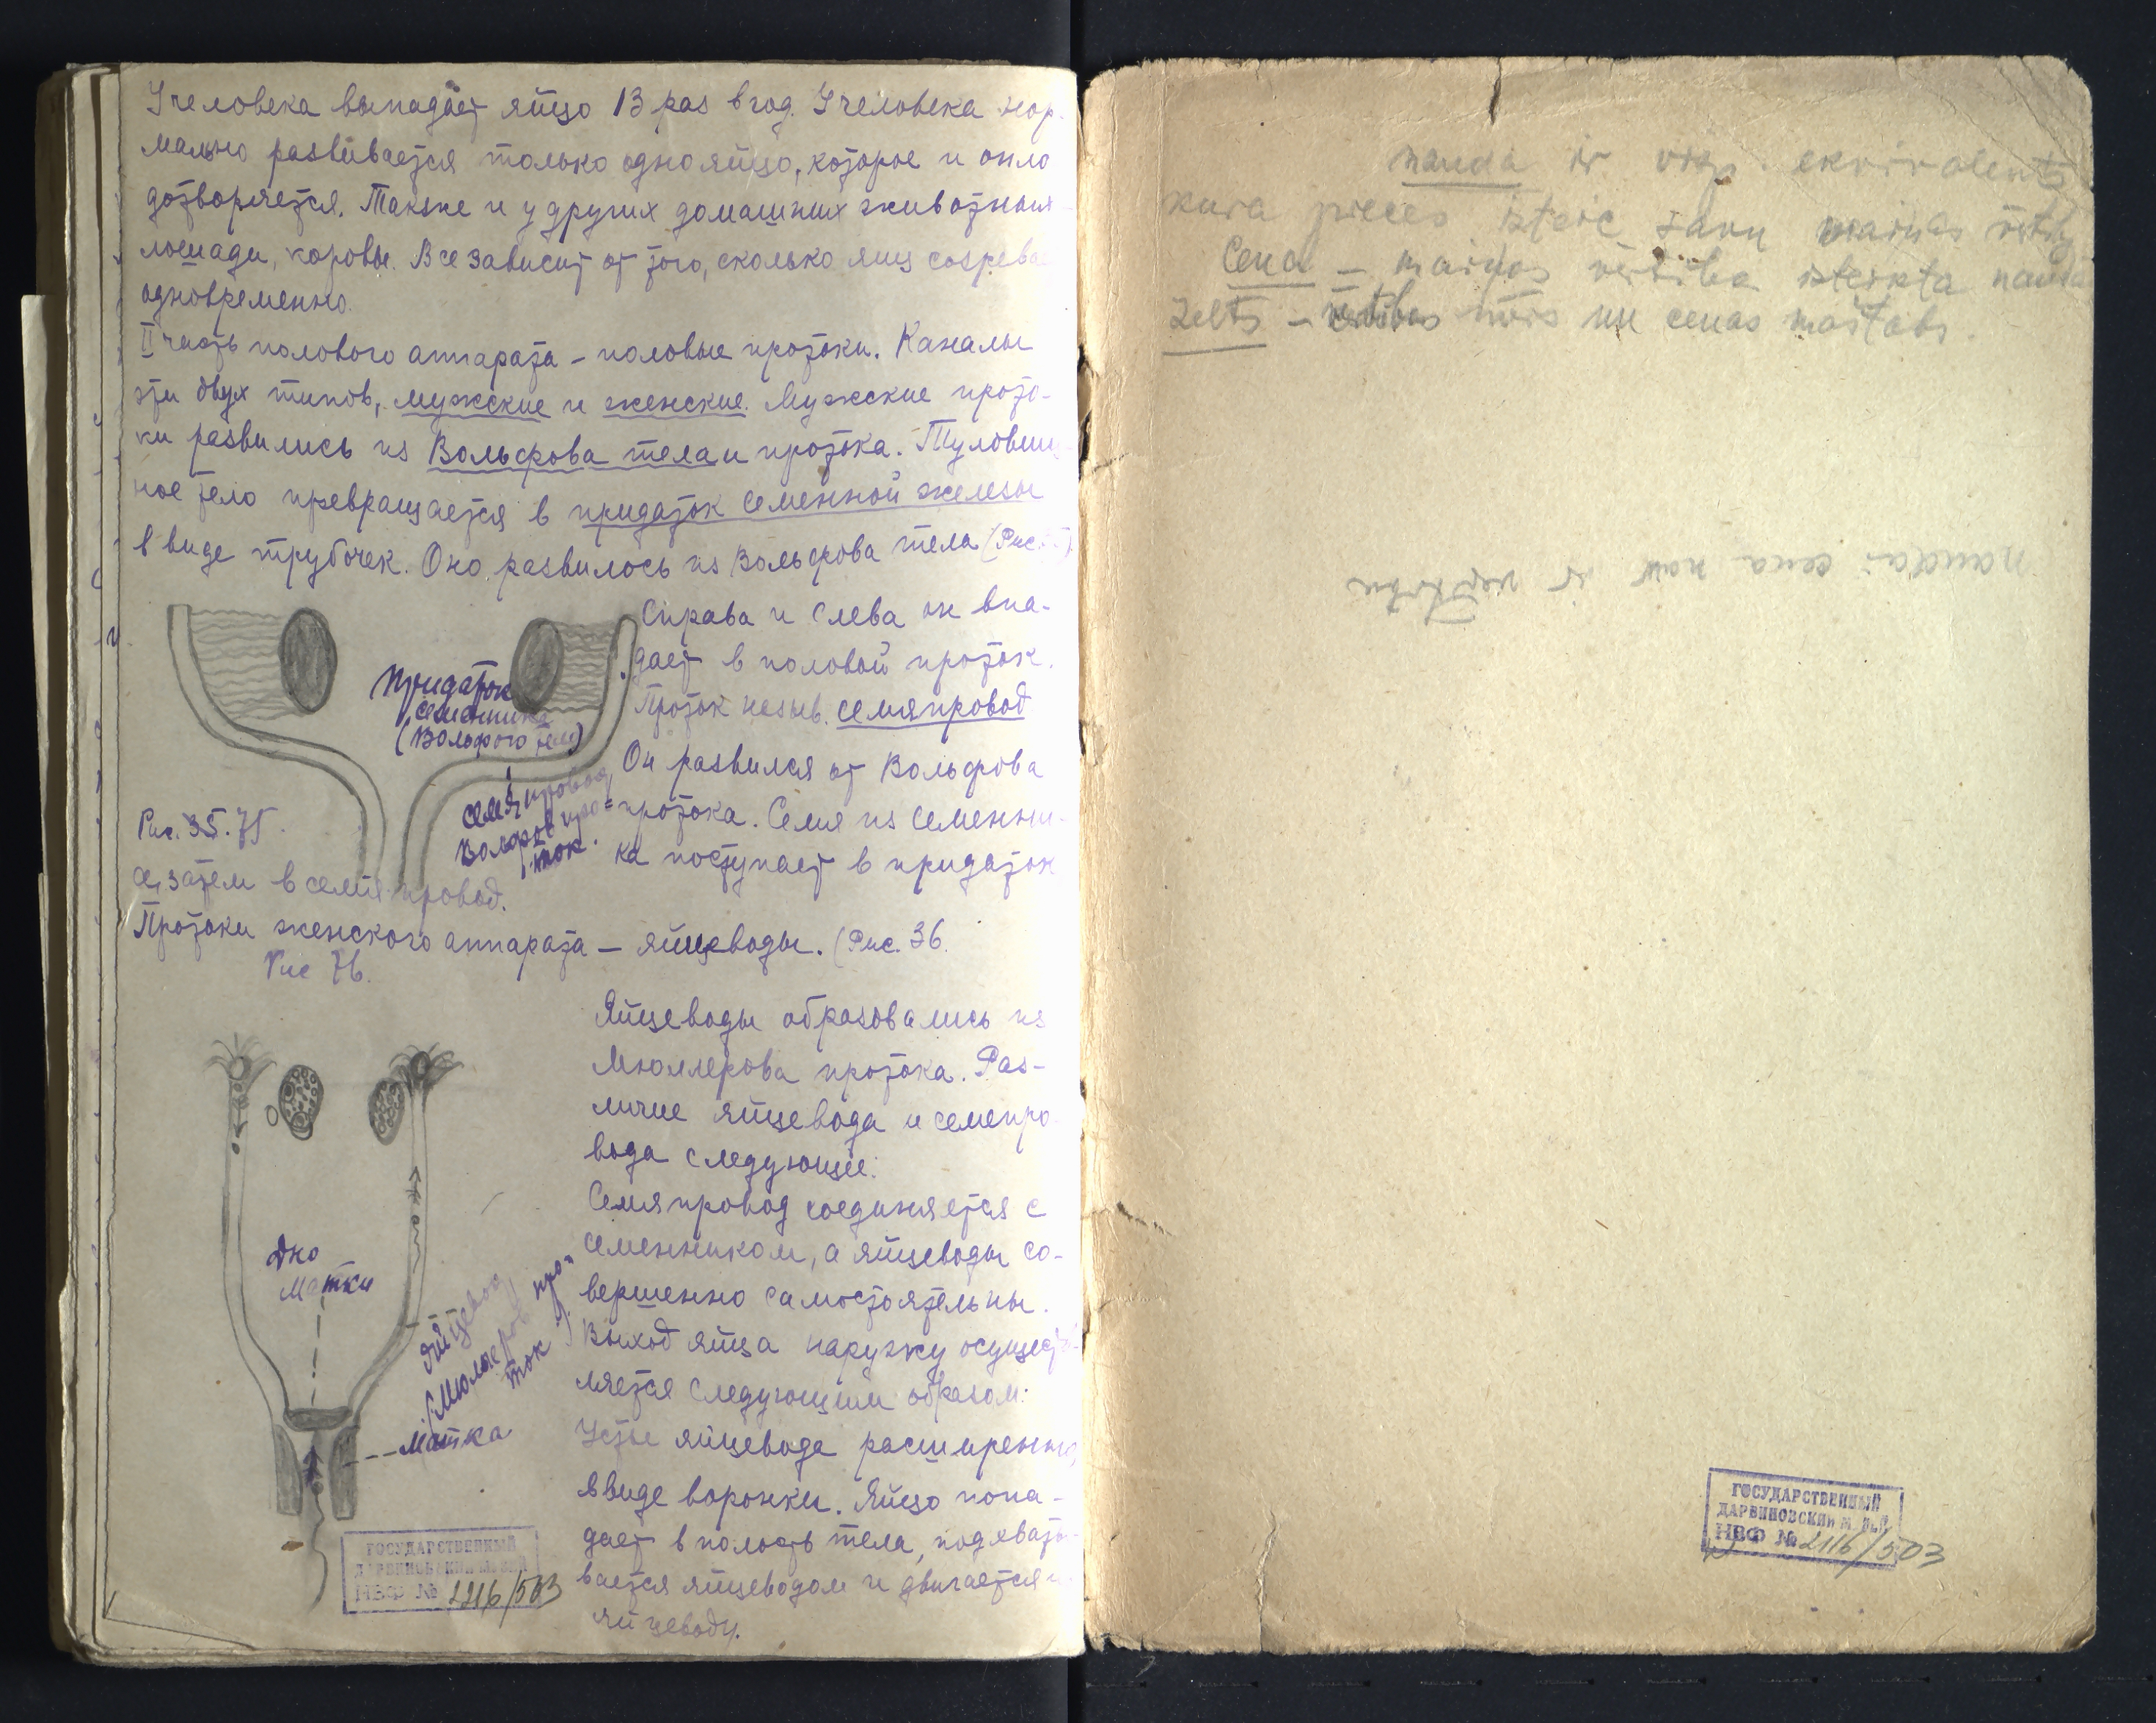 У человека выпадает яйцо 13 раз в год. У человека нор-
мально развивается только одно яйцо, которое и опло
дотворяется. Также и у других домашних животных
лошади, коровы. Все зависит от того, сколько яиц созрева
одновременно.
II часть полового аппарата – половые протоки. Каналы
эти двух типов, мужские и женские. Мужские прото-
ки развились из Вольфова тела и протока. Туловищ
ное тело превращается в придаток семенной железы
в виде трубочек. Оно развилось из Вольфова тела (Рис.
Справа и слева он впа-
дает в половой проток.
Проток назыв. семяпровод
Он развился от Вольфова
протока. Семя из семенни-
ка поступает в придаток
Придаток
семенника
(Вольфого тела)
семяпровод
Вольфов про=
ток.
Рис. 35. 75.
а, затем в семяпровод.
Протоки женского аппарата – яйцеводы. (Рис. 36.
Рис 76.
Яйцеводы образовались из
Мюллерова протока. Раз-
личие яйцевода и семепро
вода следующее:
Семяпровод соединяется с
семенником, а яйцеводы со-
вершенно самостоятельны.
Выход яйца наружу осущест
ляется следующим образом:
Устье яйцевода расширенно,
ввиде воронки. Яйцо попа-
дает в полость тела, подхваты-
вается яйцеводом и двигается
яйцеводу.
Дно
матки
Яйцевод
(Мюллеров про-
ток)
Матка
ГОСУДАРСТВЕННЫЙ
ДАРВИНОВСКИЙ МУЗЕЙ
НВФ № 2116/503
nauda ir visp. ekvivalents
kura preces izteic savu maiņas vērtību
Cena – maiņas vērtība izteikta naudā
Zelts – vērtības mērs un cenas maštabs.
naudai cena nav ir vērtība
ГОСУДАРСТВЕННЫЙ
ДАРВИНОВСКИЙ М
НВФ № 2116/503